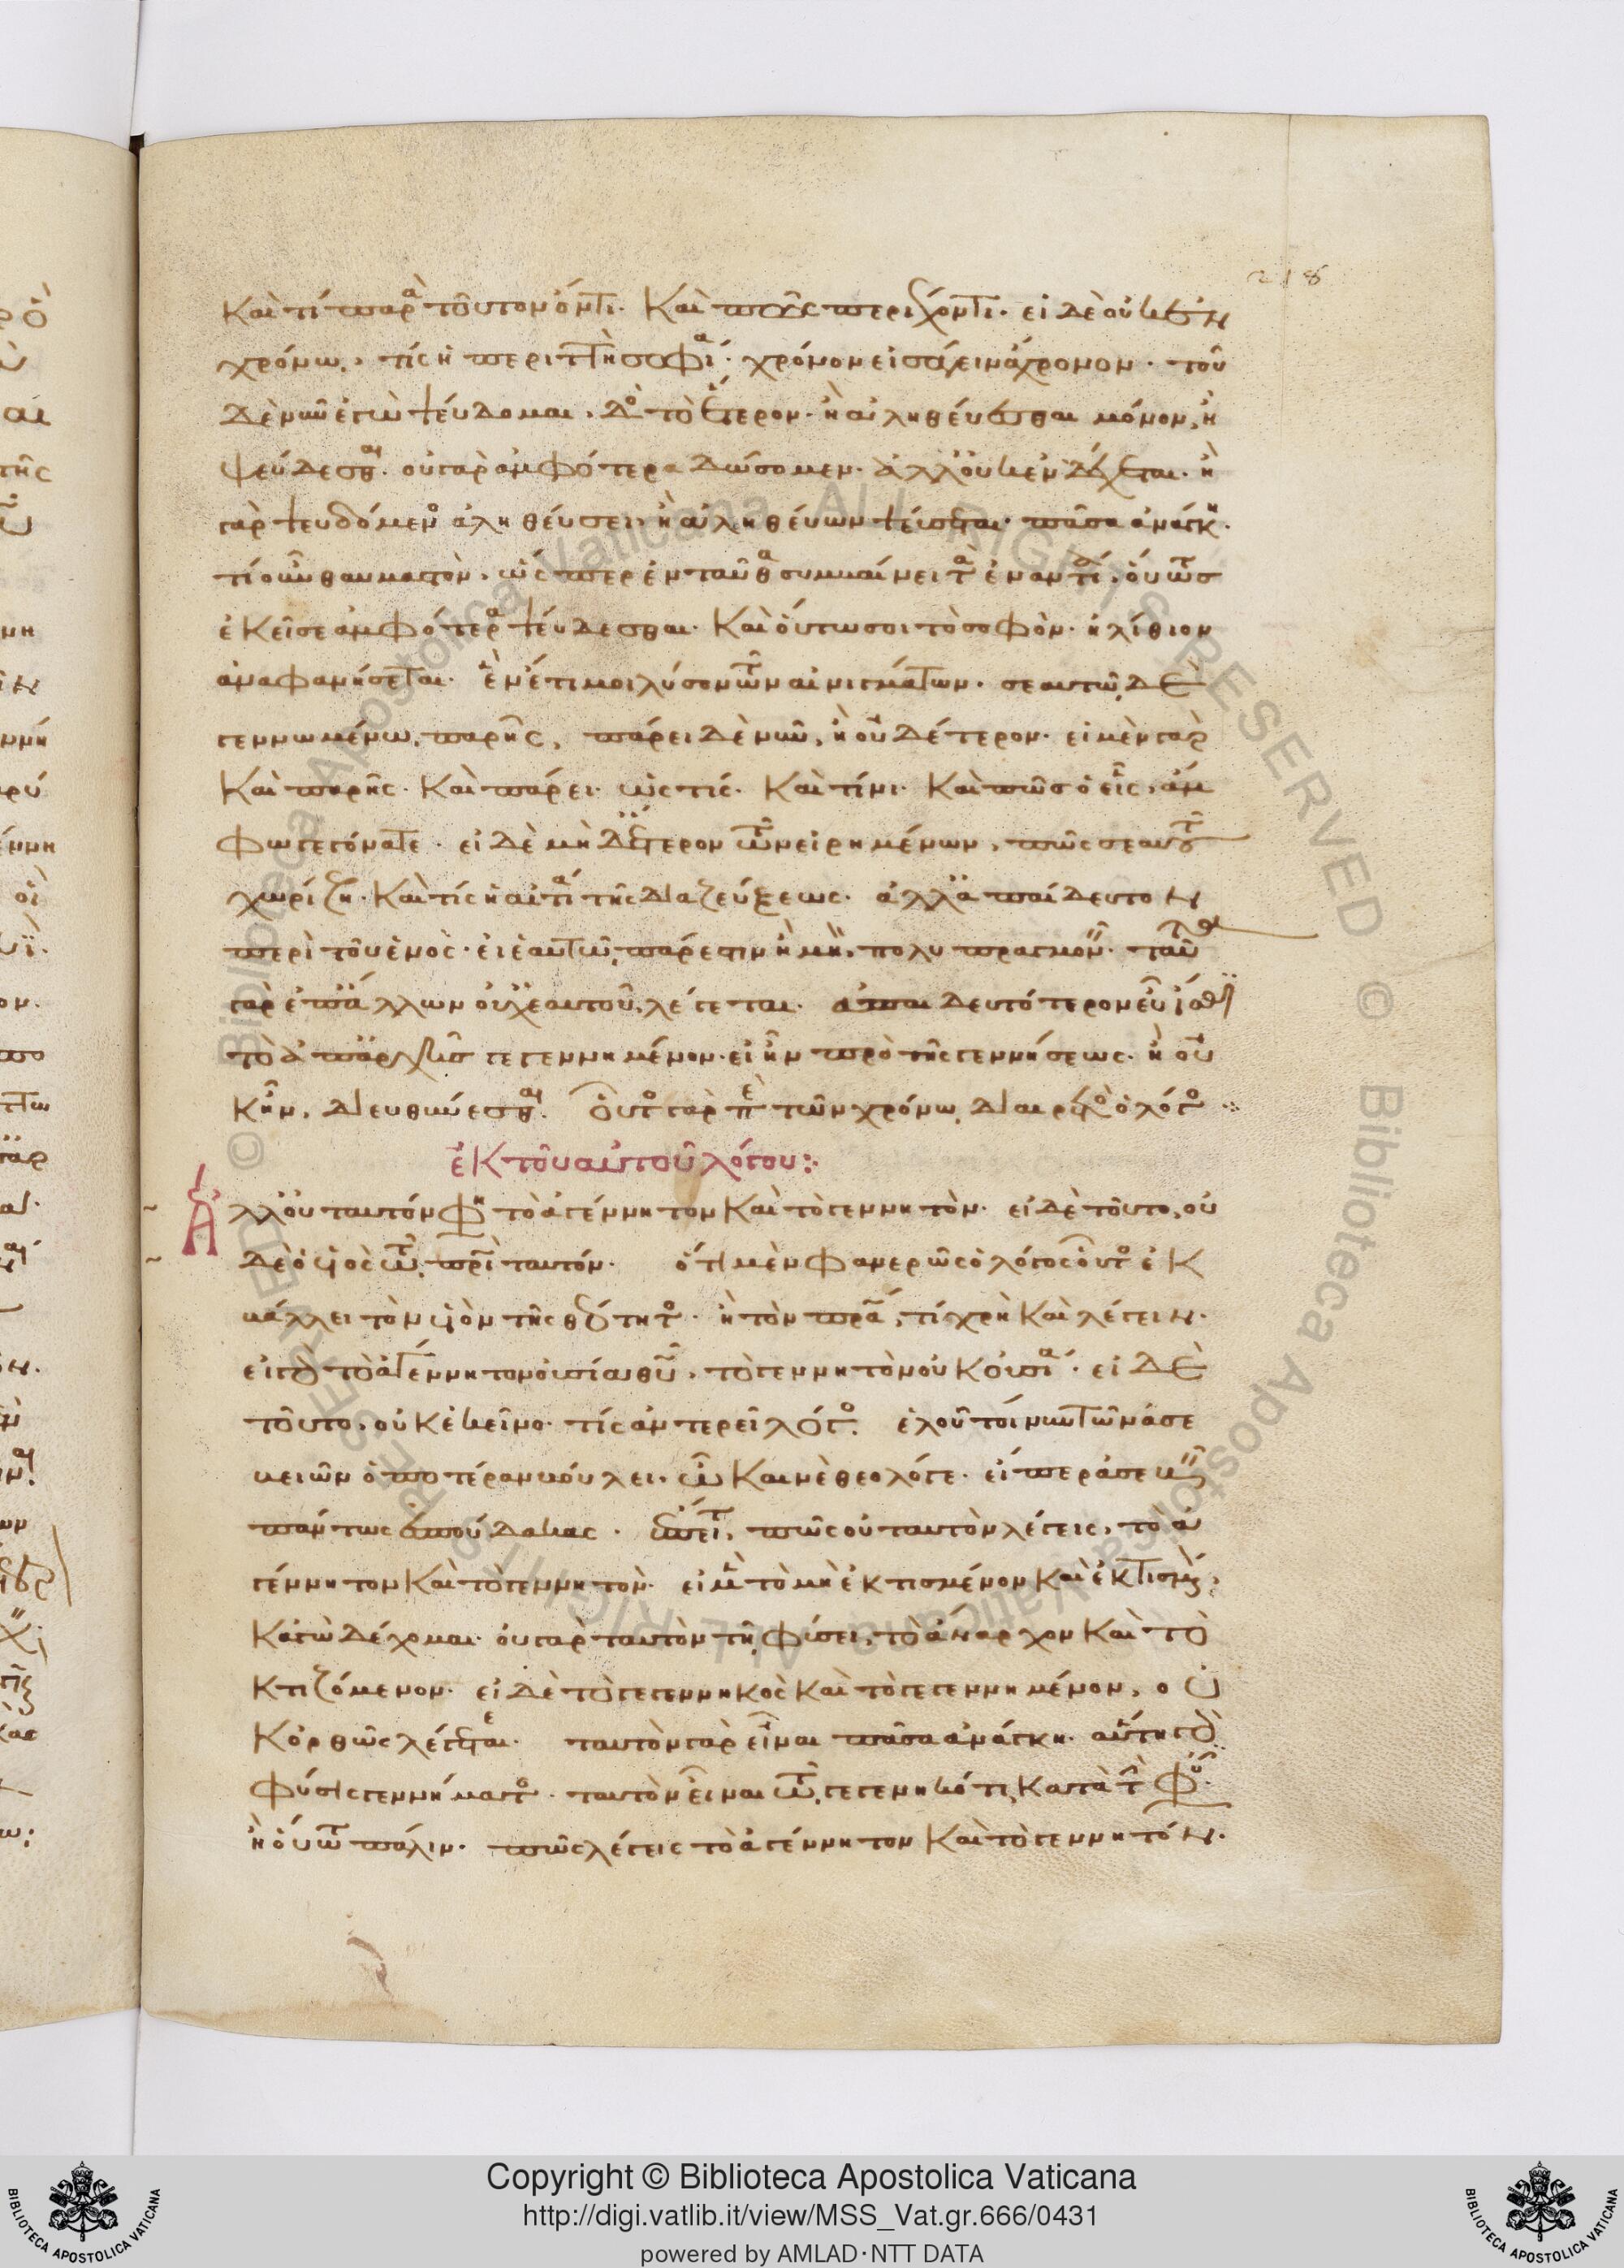 218
καὶ τί παρὰ τοῦτον ὄντι. καὶ πῶς περιέχοντι. εἰ δὲ οὐκ ἐν
χρόνω, τίς ἡ περιττὴ σοφία; χρόνον εἰσάγειν ἄχρονον. τοῦ
δὲ νῦν ἐγὼ ψεύδομαι, δὸς τὸ ἕτερον. ἢ ἀληθεύεσθαι μόνον, ἢ
ψεύδεσθαι. οὐ γὰρ ἀμφότερα δώσομεν. ἀλλ' οὐκ ἐνδέχεται. ἢ
γὰρ ψευδόμενος ἀληθεύσει, ἢ ἀληθεύων ψεύσεται. πᾶσα ἀνάγκη.
τί οὖν θαυμαστὸν, ὥσπερ ἐνταῦθα συμβαίνει τὰ ἐναντία, οὕτως
ἐκεῖσε ἀμφότερα ψεύδεσθαι. καὶ οὕτω σοι τὸ σοφὸν. ἠλίθιον
ἀναφανήσεται. ἓν ἔτι μοι λύσον τῶν αἰνιγμάτων. σεαυτῷ δὲ
γεννωμένω, παρῆς, πάρει δὲ νῦν, ἢ οὐδέτερον. εἰ μὲν γὰρ
καὶ παρῆς. καὶ πάρει. ὡς τίς. καὶ τίνι. καὶ πῶς ὁ εἷς, ἄμ
φω γεγόνατε. εἰ δὲ μηδέτερον τῶν εἰρημένων, πῶς σεαυτοῦ
χωρίζη. καὶ τίς ἡ αἰτία τῆς διαζεύξεως. ἀλλ' ἀπαίδευτον
περὶ τοῦ ἑνὸς. εἰ ἑαυτῷ πάρεστιν ἢ μὴ, πολυπραγμονεῖν. ταῦτα
γὰρ ἐπ' ἄλλων οὐχ ἑαυτοῦ λέγεται. ἀπαιδευτότερον εὖ ἴσθι
τὸ ἀπ' ἀρχῆς γεγεννημένον. εἰ ἦν πρὸ τῆς γεννήσεως. ἢ οὐ
κ ἦν, διευθύνεσθαι. οὗτος γὰρ περὶ τῶν χρόνω διαιρετῶν ὁ λόγος :
ἐκ τοῦ αὐτοῦ λόγου:
Ἀλλ' οὐ ταυτόν φησι τὸ ἀγέννητον καὶ τὸ γεννητὸν. εἰ δὲ τοῦτο, οὐ
δὲ ὁ υἱὸς τῷ πατρὶ ταυτόν. ὅτι μὲν φανερῶς ὁ λόγος οὗτος ἐκ
βάλλει τὸν υἱὸν τῆς θεότητος. ἢ τὸν πατέρα, τί χρὴ καὶ λέγειν.
εἰ γὰρ τὸ ἀγέννητον οὐσία θεοῦ, τὸ γεννητὸν οὐκ οὐσία. εἰ δὲ
τοῦτο, οὐκ ἐκεῖνο. τίς ἀντερεῖ λόγος. ἑλοῦ τοίνυν τῶν ἀσε
βειῶν ὁποτέραν βούλει. ὦ καινὲ θεολόγε. εἴπερ ἀσεβεῖν
πάντως ἐσπούδακας. ἔπειτα, πῶς οὐ ταυτὸν λέγεις, τὸ ἀ
γέννητον καὶ τὸ γεννητὸν. εἰ μὲν τὸ μὴ ἐκτισμένον καὶ ἐκτισμένον,
κἀγὼ δέχομαι. οὐ γὰρ ταυτὸν τῆ φύσει, τὸ ἄναρχον καὶ τὸ
κτιζόμενον. εἰ δὲ τὸ γεγεννηκὸς καὶ τὸ γεγεννημένον, οὐ
κ ὀρθῶς λέγεται. ταυτὸν γὰρ εἶναι πᾶσα ἀνάγκη. αὕτη γὰρ
φύσις γεννήματος. ταυτὸν εἶναι τῷ γεγενηκότι κατὰ τὴν φύσιν.
ἢ οὕτω πάλιν. πῶς λέγεις τὸ ἀγέννητον καὶ τὸ γεννητόν.
Copyright © Biblioteca Apostolica Vaticana
http://digi.vatlib.it/view/MSS_Vat.gr.666/0431
powered by AMLAD·NTT DATA